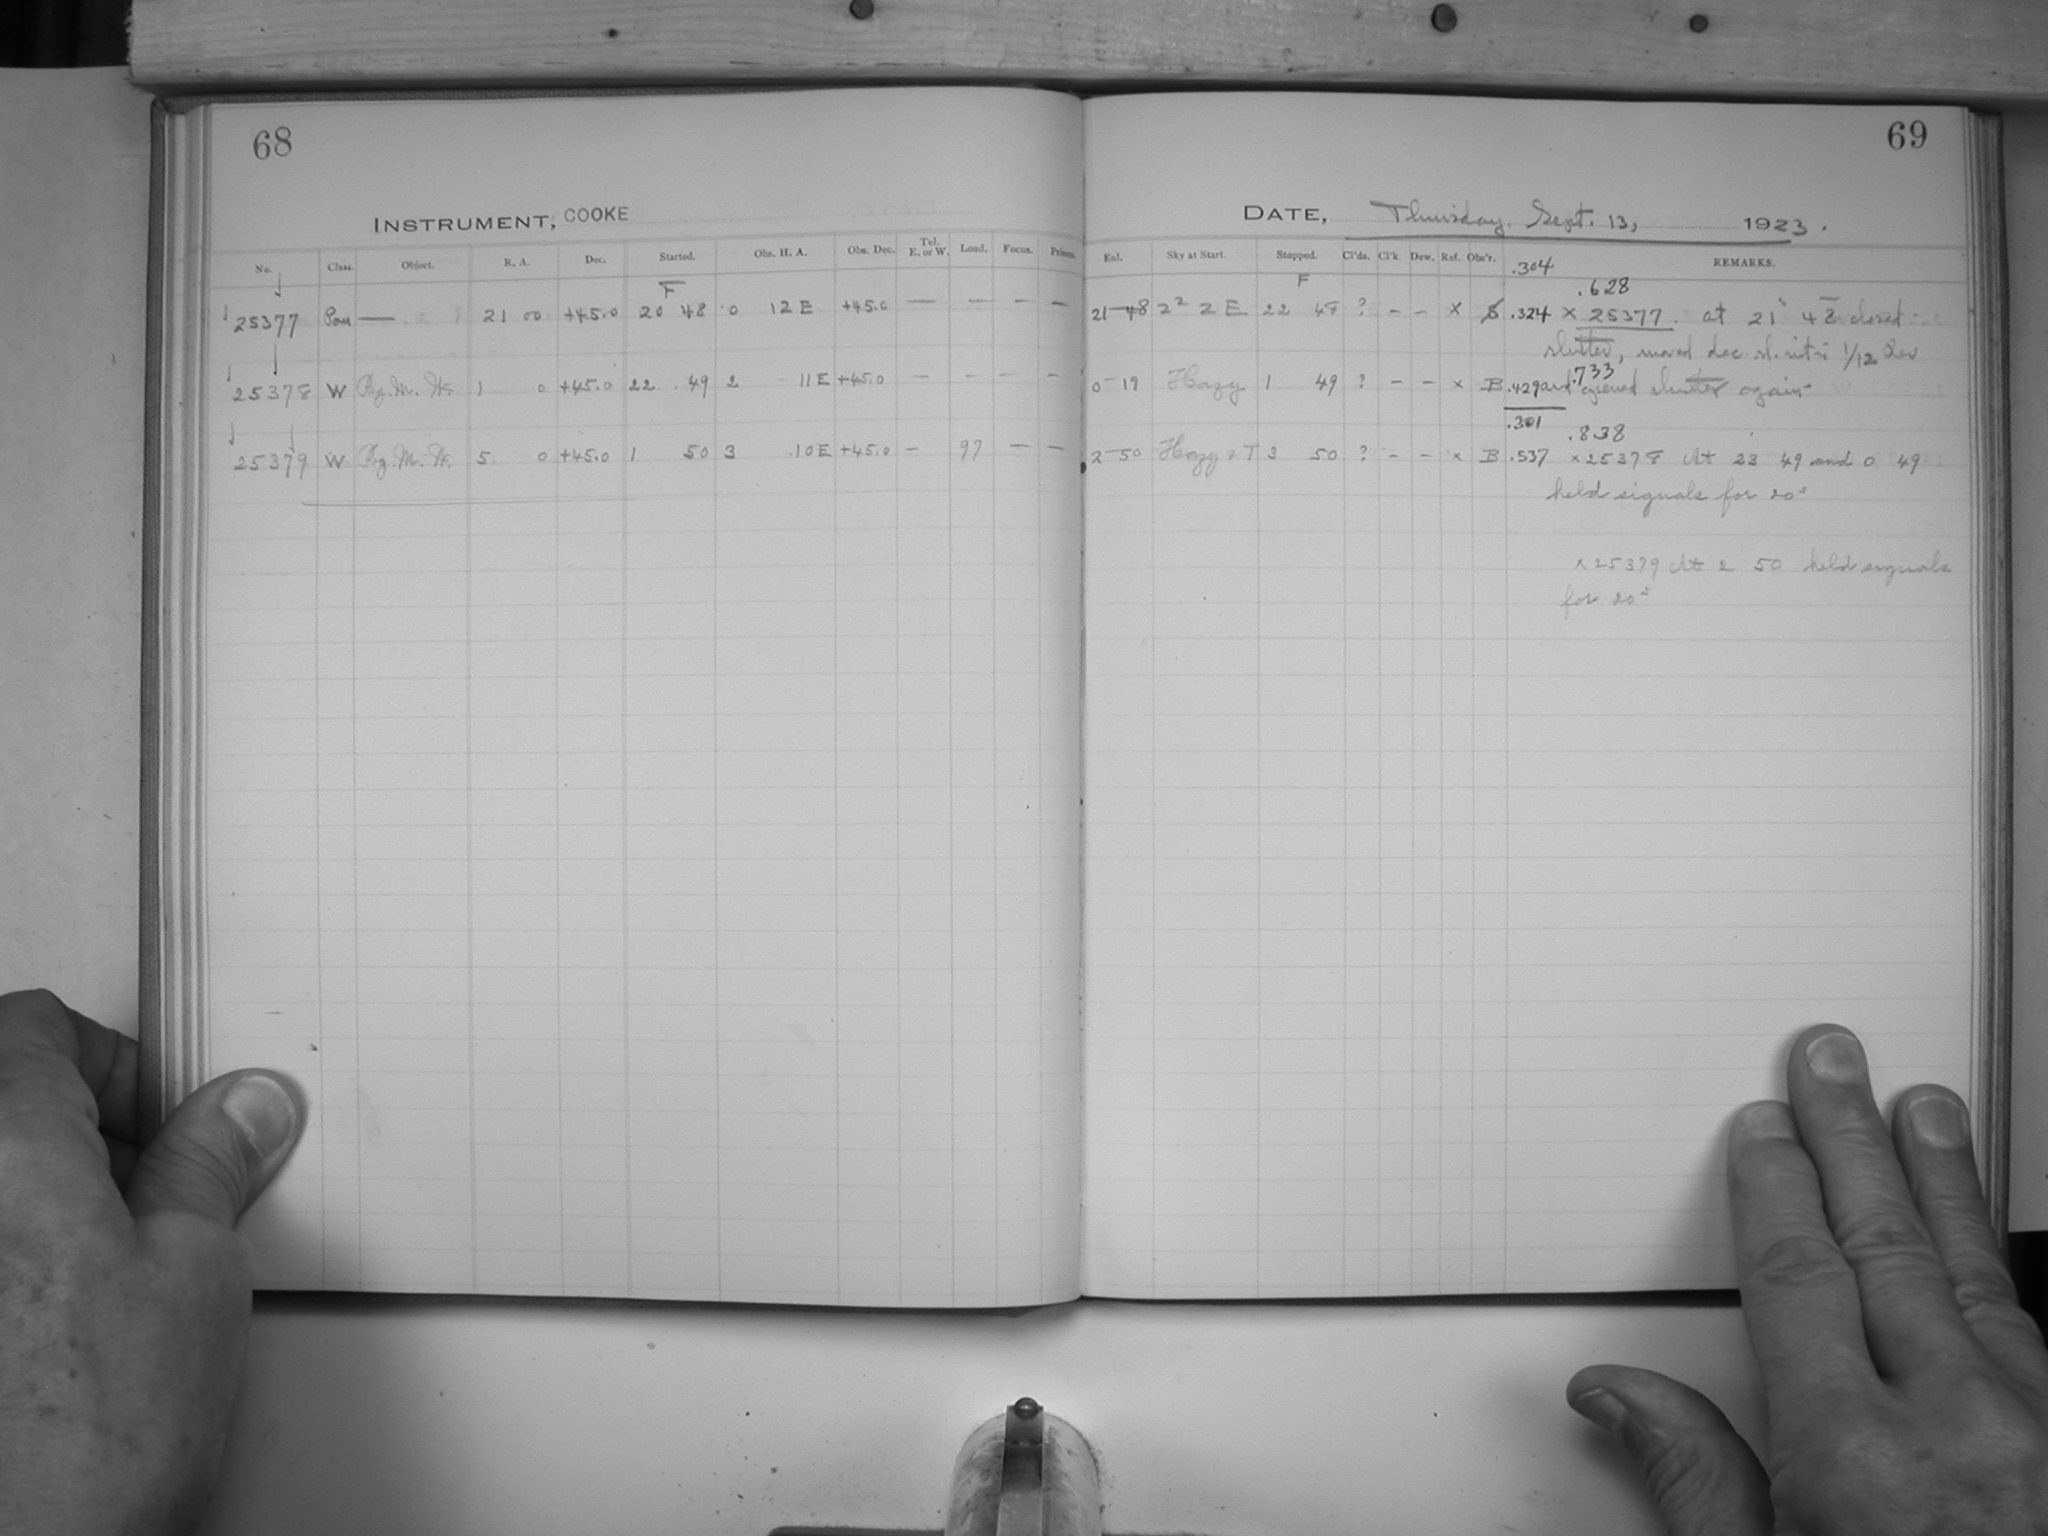 68
69
INSTRUMENT, COOKE
DATE, Thursday, Sept. 13, 1923.
No. Class. Object. R. A. Dec. Started. Obs. H. A. Obs. Dec. Tel. E. or W. Load. Focus. Prisms.
Exl. Sky at Start. Stopped. Cl'ds. Cl'k. Dew. Ref. Obs'r. REMARKS.
.304
F F .628
25377 — 21 00 +45.0 20 48 0 12 E +45.0 — — — — 21 48 2² 2 E 22 48 ? — — x .324 x 25377. at 21 48 closed
shutter, moved dec. sl. 1/12 Rev
.733
25378 W 1 0 +45.0 22 49 2 11 E +45.0 — — — — 0 19 Hazy 1 49 ? — — x B .429 and opened shutter again
.301
.838
25379 W 5 0 +45.0 1 50 3 10 E +45.0 — 97 — — 2 50 Hazy & T 3 50 ? — — x B .537 x 25378 At 23 49 and 0 49
held signals for 20ˢ
x 25379 At 2 50 held signals
for 20ˢ